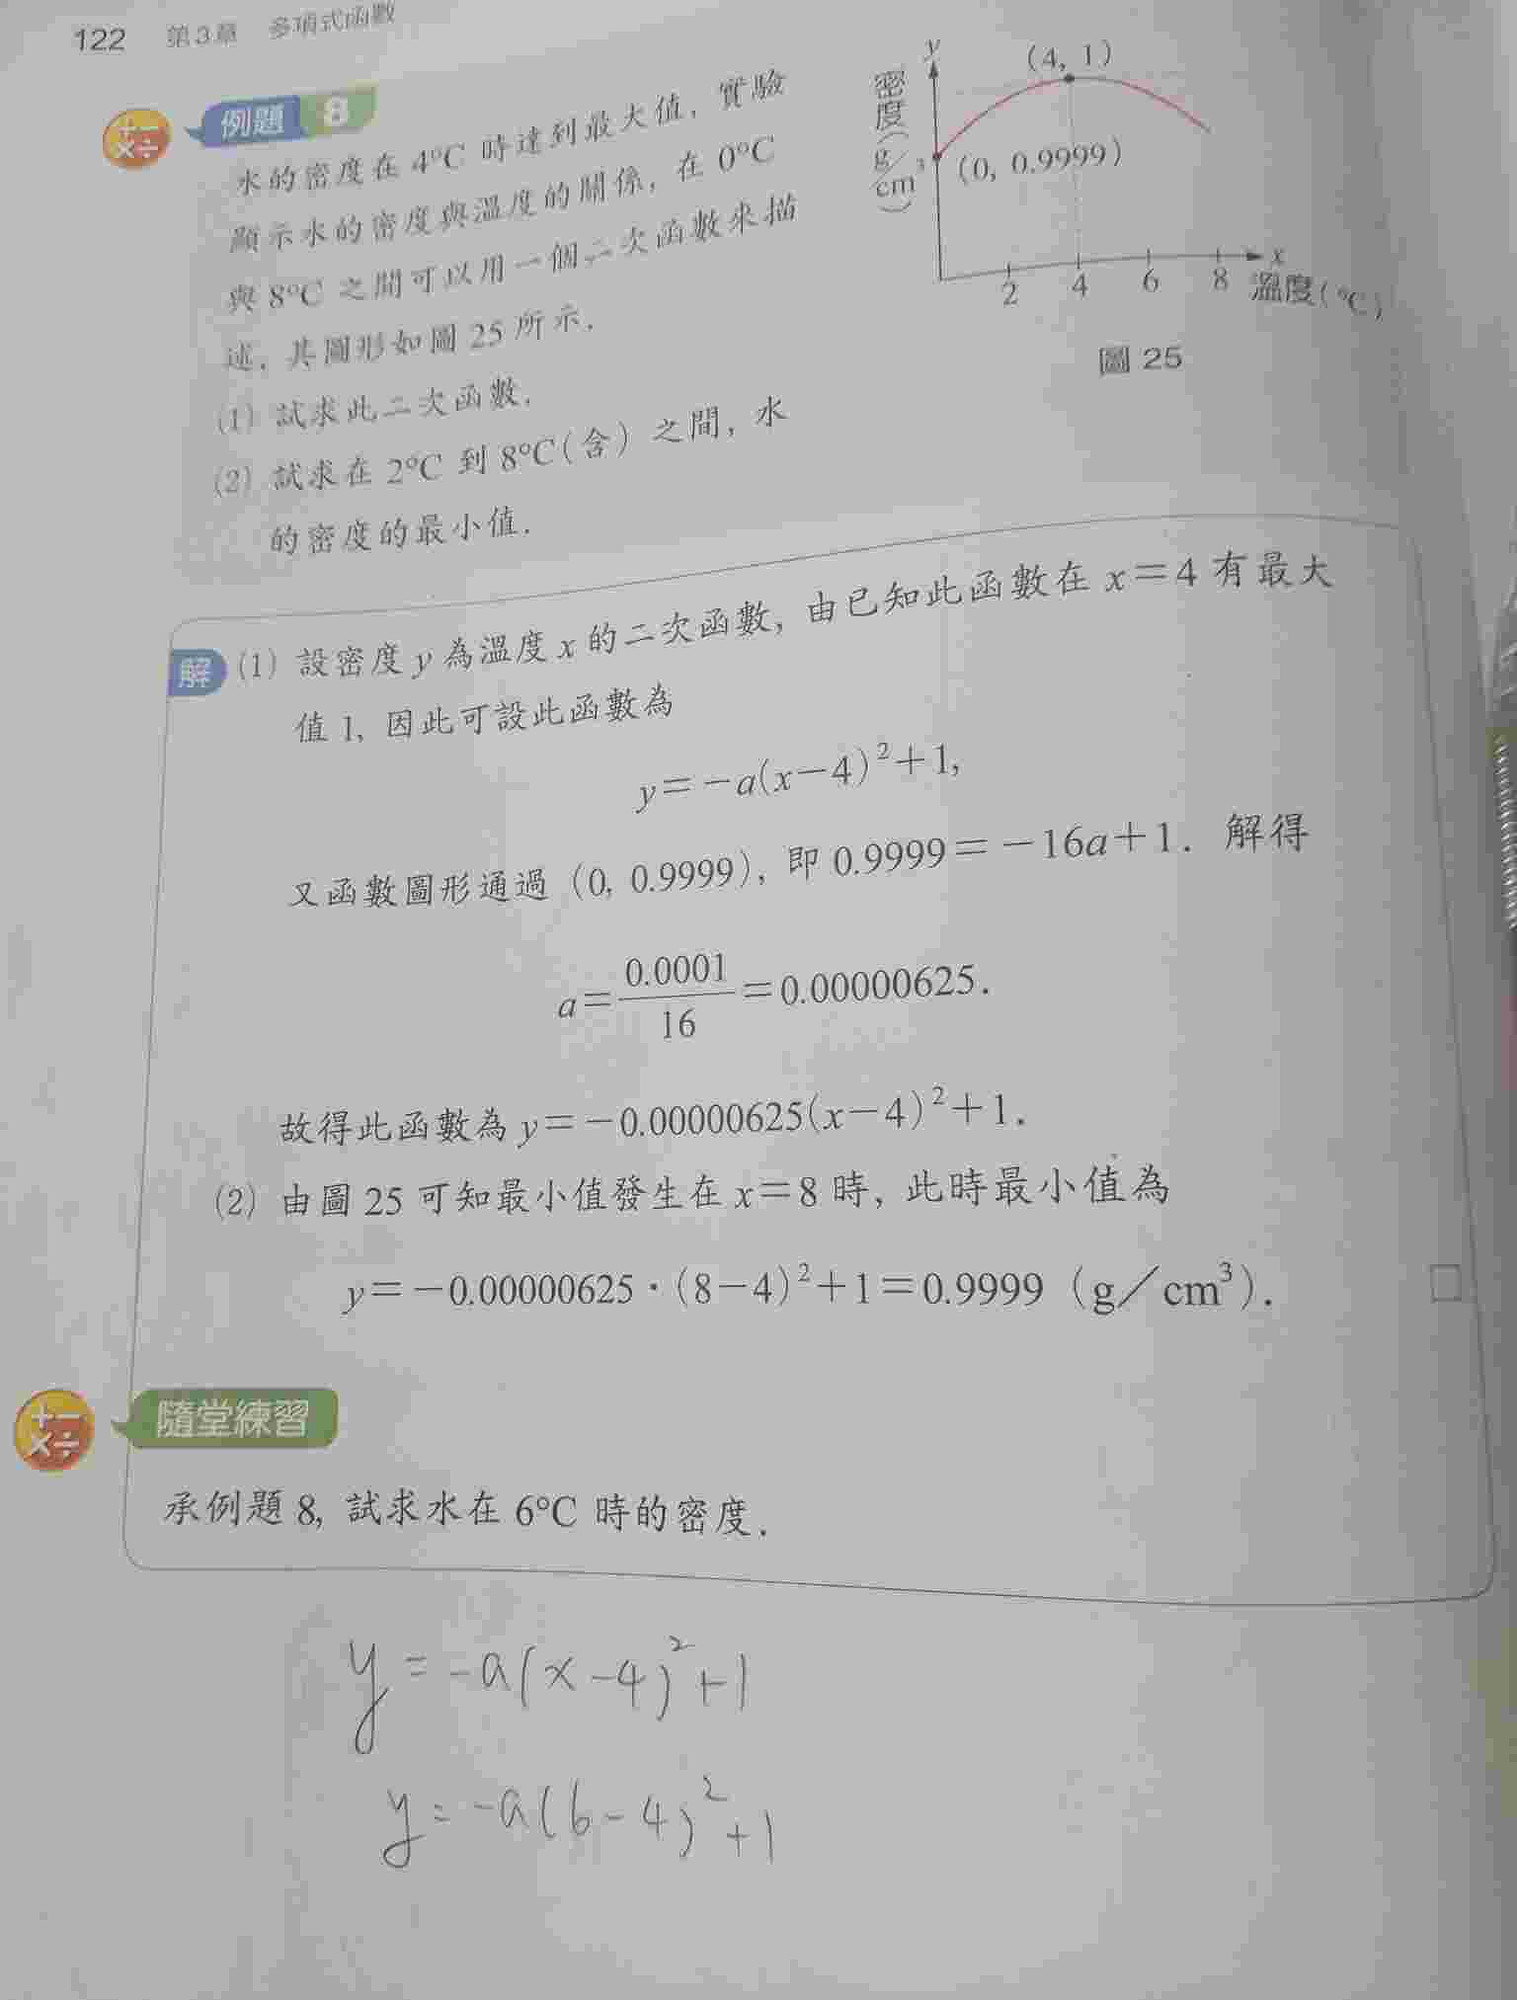 122 第3章 多項式函數
例題 8
水的密度在 4°C 時達到最大值, 實驗
顯示水的密度與溫度的關係, 在 0°C
與 8°C 之間可以用一個二次函數來描
述, 其圖形如圖 25 所示.
(1) 試求此二次函數.
(2) 試求在 2°C 到 8°C(含) 之間, 水
的密度的最小值.
y
密度(g/cm³)
(4, 1)
(0, 0.9999)
2 4 6 8 x
溫度(°C)
圖 25
解 (1) 設密度 y 為溫度 x 的二次函數, 由已知此函數在 x=4 有最大
值 1, 因此可設此函數為
y=-a(x-4)²+1,
又函數圖形通過 (0, 0.9999), 即 0.9999=-16a+1. 解得
a=0.0001/16=0.00000625.
故得此函數為 y=-0.00000625(x-4)²+1.
(2) 由圖 25 可知最小值發生在 x=8 時, 此時最小值為
y=-0.00000625·(8-4)²+1=0.9999 (g/cm³).
隨堂練習
承例題 8, 試求水在 6°C 時的密度.
y=-a(x-4)²+1
y=-a(6-4)²+1